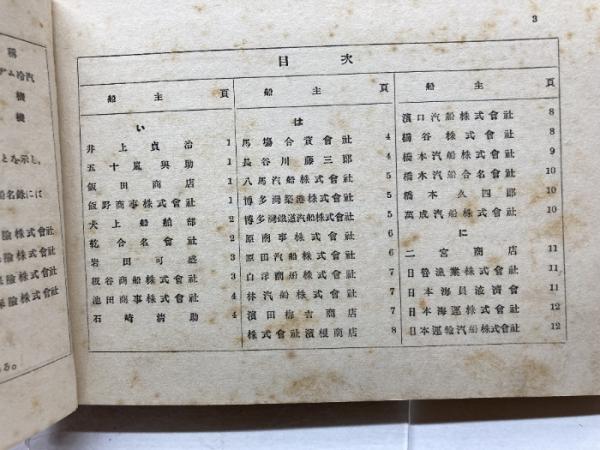 3
目次
船主 頁
い
井上貞治 1
五十嵐興助 1
飯田商店 1
飯野商事株式會社 1
犬上船舶部 2
乾合名會社 2
岩田可盛 2
板谷商船株式會社 2
池田商事株式會社 2
石崎清助 2
船主 頁
は
馬場合資會社 4
長谷川藤三郎 4
八馬汽船株式會社 4
博多灣築港株式會社 5
博多灣鐵道汽船株式會社 5
原商事株式會社 6
原田汽船株式會社 6
白洋商船株式會社 7
林汽船株式會社 7
濱田梅吉商店 7
株式會社濱根商店 8
船主 頁
濱口汽船株式會社 8
橋谷株式會社 8
橋本汽船株式會社 9
橋本汽船合名會社 10
橋本久四郎 10
萬成汽船株式會社 10
に
二宮商店 11
日魯漁業株式會社 11
日本海員掖濟會 11
日本海運株式會社 12
日本運輸汽船株式會社 12
稱
アム冷汽
機
機
とを示し、
船名錄には
險株式會社
險株式會社
保險株式會社
保險株式會社